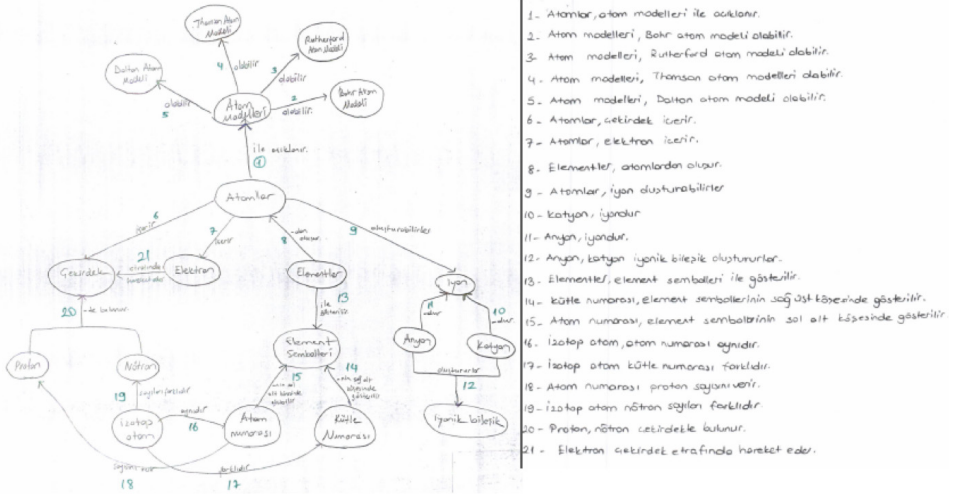 Thomson Atom
Modeli
Rutherford
Atom Modeli
Dalton Atom
Modeli
Bohr Atom
Modeli
4 olabilir
3
olabilir
olabilir
5
2
olabilir.
Atom
Modelleri
ile açıklanır.
1
Atomlar
6
içerir
7
içerir
8
-dan
oluşur.
9
oluşturabilirler
21
etrafında
Çekirdek
Elektron
Elementler
İyon
20
-de bulunur.
ile
gösterilir.
13
11
-dur
10
-dur.
Element
Sembolleri
Anyon
Katyon
Proton
Nötron
15
14
oluştururlar
12
19
sayıları farklıdır
İzotop
atom
aynıdır
16
Atom
numarası
Kütle
Numarası
İyonik bileşik
18
farklıdır
17
1- Atomlar, atom modelleri ile açıklanır.
2- Atom modelleri, Bohr atom modeli olabilir.
3- Atom modelleri, Rutherford atom modeli olabilir.
4- Atom modelleri, Thomson atom modelleri olabilir.
5- Atom modelleri, Dalton atom modeli olabilir.
6- Atomlar, çekirdek içerir.
7- Atomlar, elektron içerir.
8- Elementler, atomlardan oluşur.
9- Atomlar, iyon oluşturabilirler
10- Katyon, iyondur
11- Anyon, iyondur.
12- Anyon, katyon iyonik bileşik oluştururlar.
13- Elementler, element sembolleri ile gösterilir.
14- kütle numarası, element sembollerinin sağ üst köşesinde gösterilir.
15- Atom numarası, element sembollerinin sol alt köşesinde gösterilir
16- izotop atom, atom numarası aynıdır.
17- İzotop atom kütle numarası farklıdır.
18- Atom numarası proton sayısını verir.
19- izotop atom nötron sayıları farklıdır.
20- Proton, nötron çekirdekte bulunur.
21- Elektron çekirdek etrafında hareket eder.